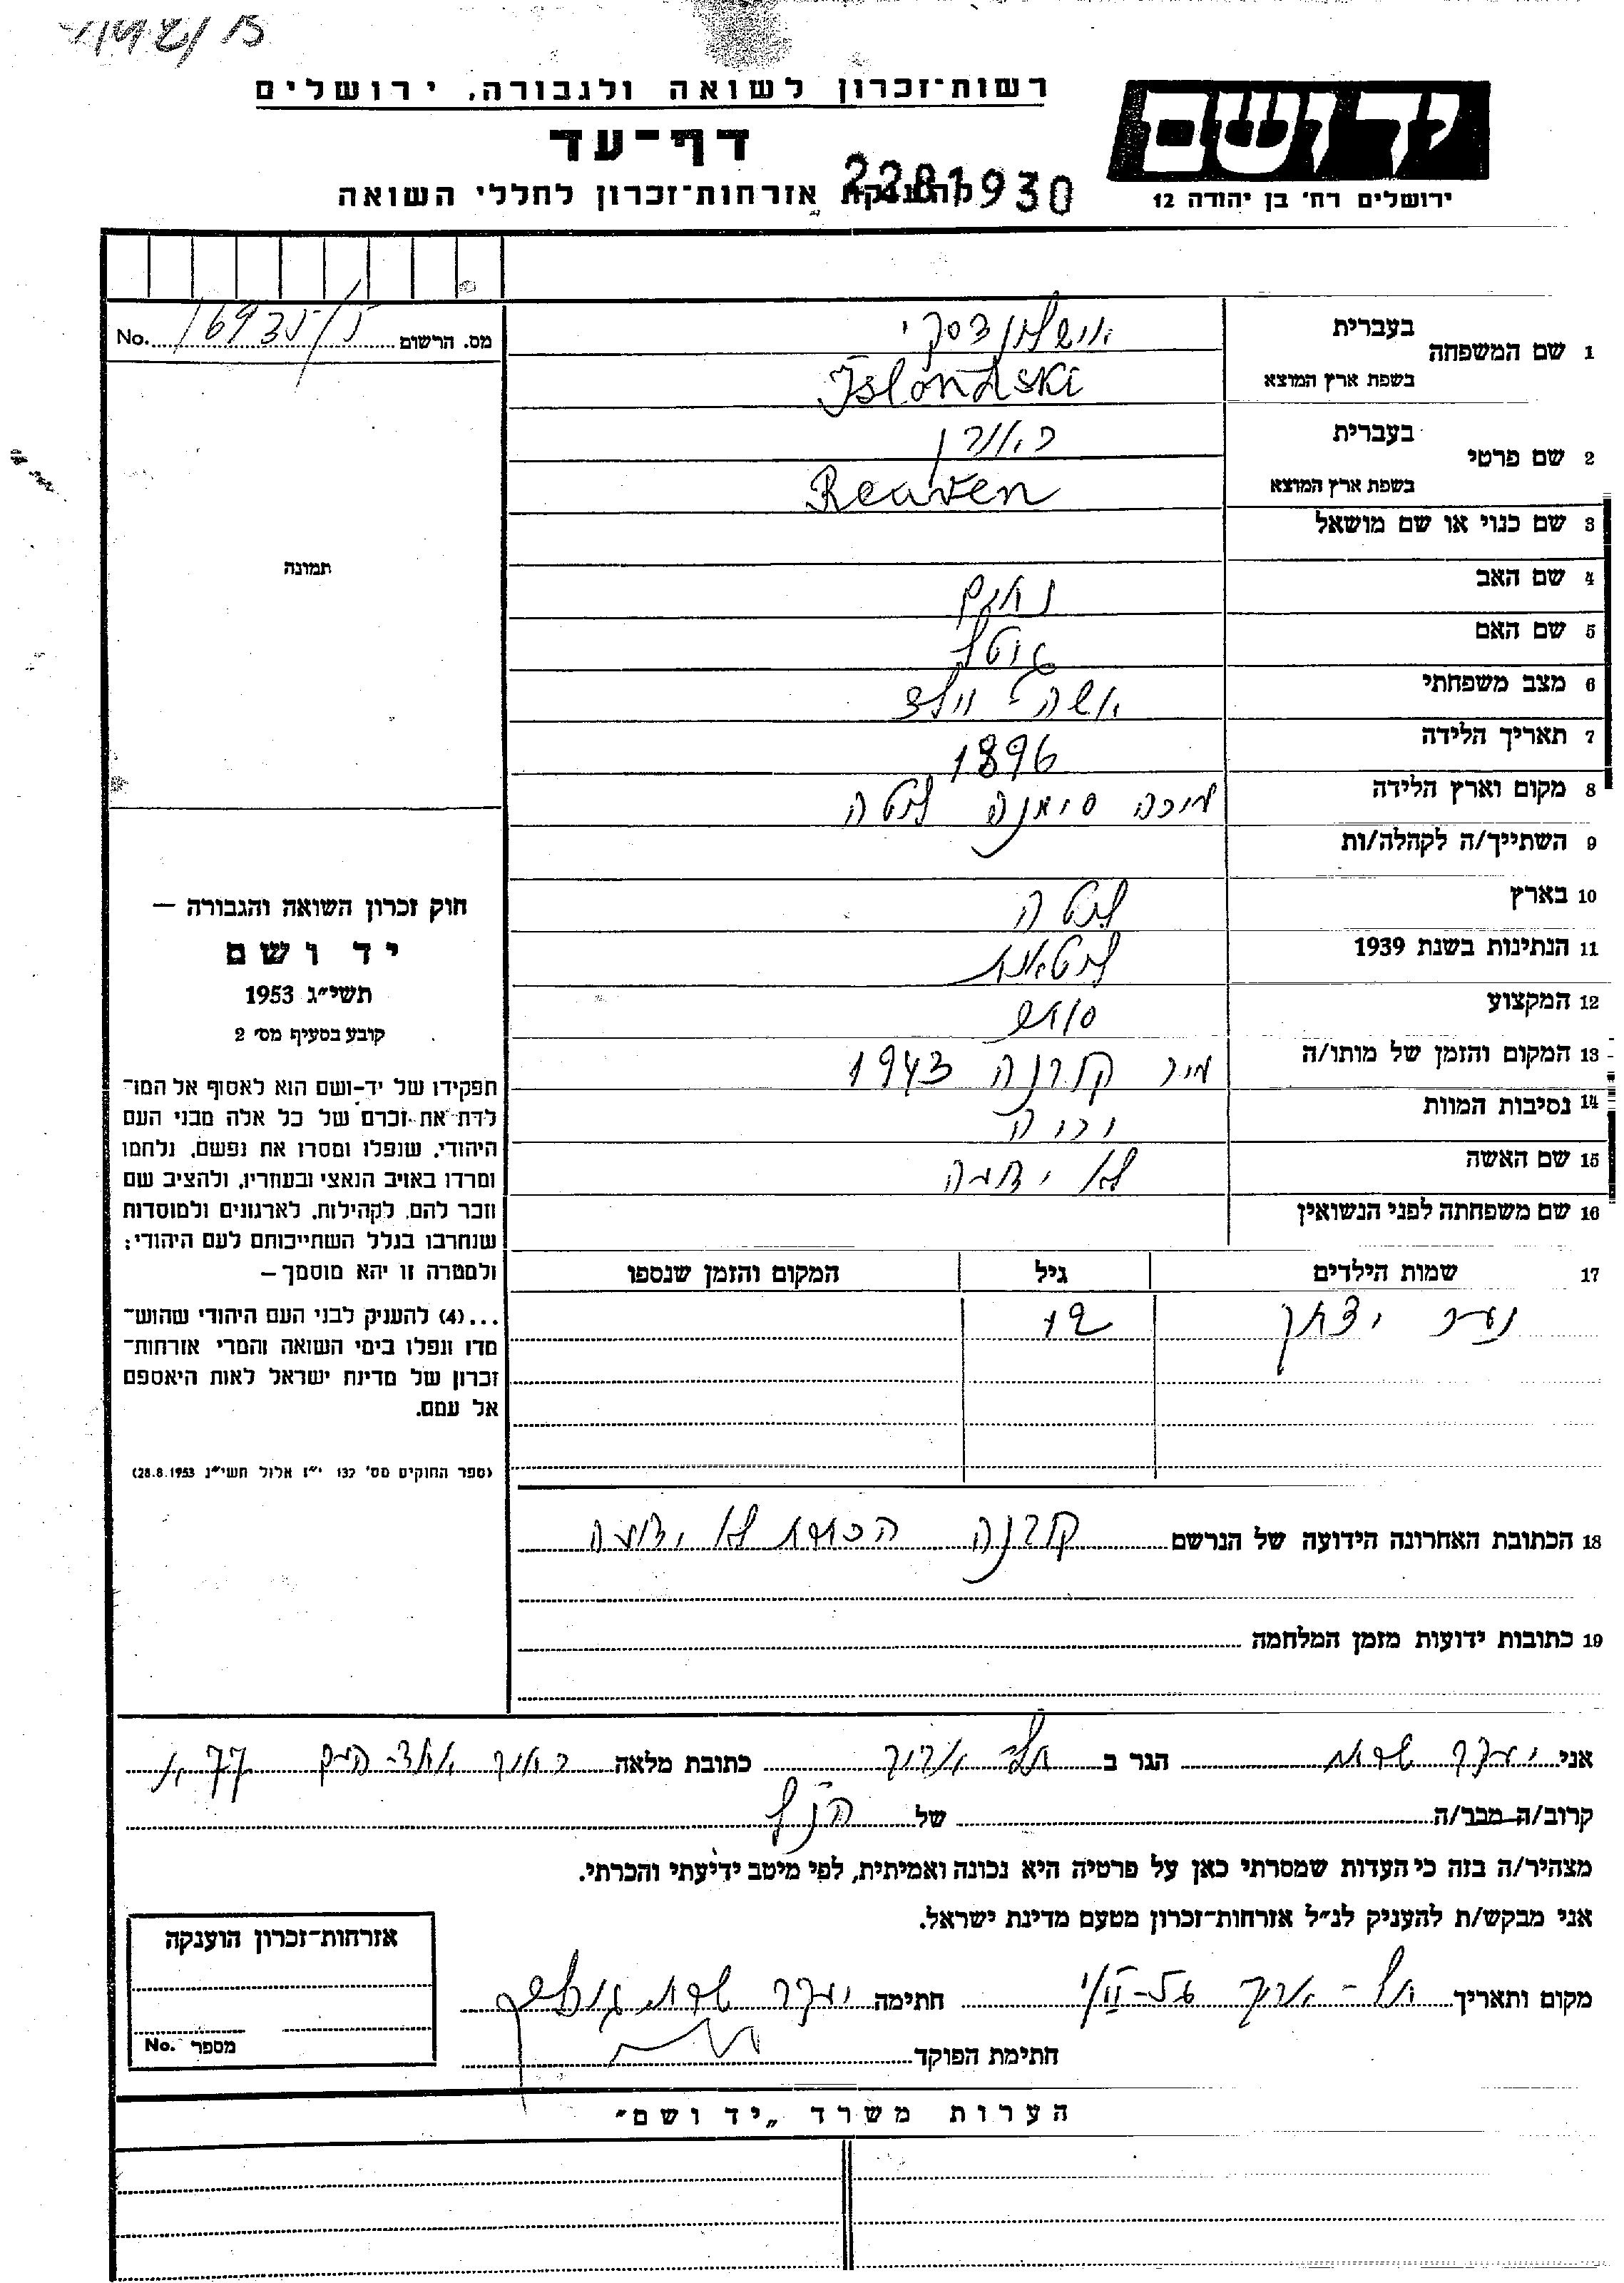 רשות־זכרון לשואה ולגבורה, ירושלים
דף־עד
להענקת אזרחות־זכרון לחללי השואה
2281930
יד ושם
ירושלים רח׳ בן יהודה 12
מס. הרשום 16935/5 No.
1 שם המשפחה
בעברית אישלונדסקי
בשפת ארץ המוצא Islondski
2 שם פרטי
בעברית ראובן
בשפת ארץ המוצא Reaven
3 שם כנוי או שם מושאל
4 שם האב נחום
5 שם האם גיטל
6 מצב משפחתי אשה־ וילד
7 תאריך הלידה 1896
8 מקום וארץ הלידה ליטה
9 השתייך/ה לקהלה/ות
10 בארץ ליטה
11 הנתינות בשנת 1939 ליטאית
12 המקצוע סוחר
13 המקום והזמן של מותו/ה עיר קובנה 1943
14 נסיבות המוות
15 שם האשה לא ידוע
16 שם משפחתה לפני הנשואין
17 שמות הילדים גיל המקום והזמן שנספו
12
18 הכתובת האחרונה הידועה של הנרשם קובנה הכתובת לא ידועה
19 כתובות ידועות מזמן המלחמה
תמונה
חוק זכרון השואה והגבורה —
יד ושם
תשי״ג 1953
קובע בסעיף מס׳ 2
תפקידו של יד-ושם הוא לאסוף אל המו־
לדת את זכרם של כל אלה מבני העם
היהודי, שנפלו ומסרו את נפשם, נלחמו
ומרדו באויב הנאצי ובעוזריו, ולהציב שם
וזכר להם, לקהילות, לארגונים ולמוסדות
שנחרבו בגלל השתייכותם לעם היהודי;
ולמטרה זו יהא מוסמך—
...(4) להעניק לבני העם היהודי שהוש־
מדו ונפלו בימי השואה והמרי אזרחות־
זכרון של מדינת ישראל לאות היאספם
אל עמם.
(ספר החוקים מס׳ 132 י״ז אלול תשי״ג 28.8.1953)
אני יעקב הגר ב תל אביב כתובת מלאה
קרוב/ה מכר/ה של הנ״ל
מצהיר/ה בזה כי העדות שמסרתי כאן על פרטיה היא נכונה ואמיתית, לפי מיטב ידיעתי והכרתי.
אני מבקש/ת להעניק לנ״ל אזרחות־זכרון מטעם מדינת ישראל.
מקום ותאריך תל־אביב חתימה יעקב
חתימת הפוקד
אזרחות־זכרון הוענקה
מספר No.
הערות משרד „יד ושם״